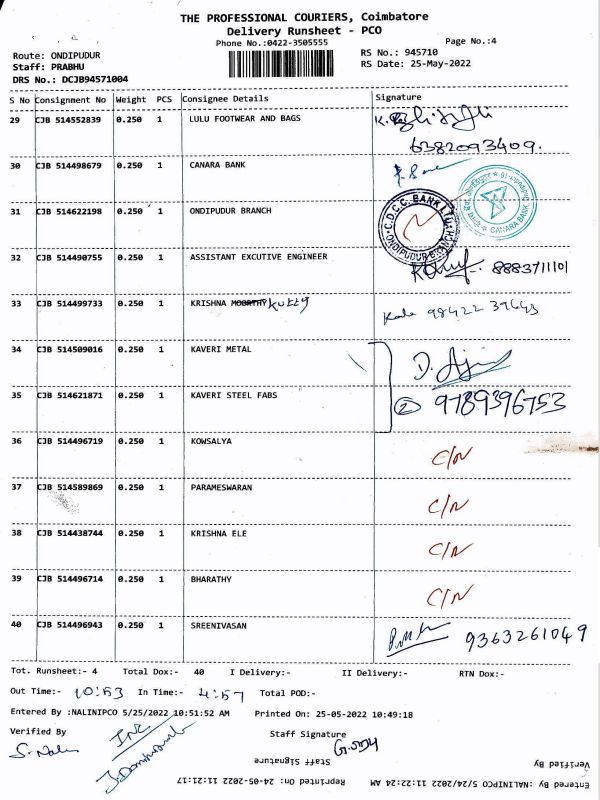 THE PROFESSIONAL COURIERS, Coimbatore
Delivery Runsheet - PCO
Phone No.:0422-3505555
Page No.:4
Route: ONDIPUDUR
RS No.: 945710
Staff: PRABHU
RS Date: 25-May-2022
DRS No.: DCJB94571004
S No Consignment No Weight PCS Consignee Details Signature
29 CJB 514552839 0.250 1 LULU FOOTWEAR AND BAGS
6382093409.
30 CJB 514498679 0.250 1 CANARA BANK
CANARA BANK
31 CJB 514622198 0.250 1 ONDIPUDUR BRANCH
C.D.C.C. BANK LTD
ONDIPUDUR BRANCH
32 CJB 514490755 0.250 1 ASSISTANT EXCUTIVE ENGINEER
8883711101
33 CJB 514499733 0.250 1 KRISHNA MOORTHY kutty
Kala 98422 39643
34 CJB 514509016 0.250 1 KAVERI METAL
35 CJB 514621871 0.250 1 KAVERI STEEL FABS
2 9789396753
36 CJB 514496719 0.250 1 KOWSALYA C/N
37 CJB 514589869 0.250 1 PARAMESWARAN C/N
38 CJB 514438744 0.250 1 KRISHNA ELE C/N
39 CJB 514496714 0.250 1 BHARATHY C/N
40 CJB 514496943 0.250 1 SREENIVASAN 9363261049
Tot. Runsheet:- 4 Total Dox:- 40 I Delivery:- II Delivery:- RTN Dox:-
Out Time:- 10:53 In Time:- 4:57 Total POD:-
Entered By :NALINIPCO 5/25/2022 10:51:52 AM Printed On: 25-05-2022 10:49:18
Verified By Staff Signature
Staff Signature
Verified By
Entered By :NALINIPCO 5/24/2022 11:22:24 AM Reprinted On: 24-05-2022 11:21:17